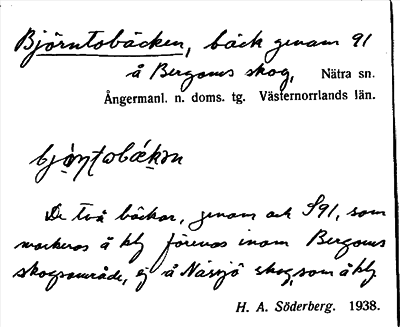 Björntobäcken, bäck genom 91
å Bergoms skog, Nätra sn.
Ångermanl. n. doms. tg. Västernorrlands län.
De två bäckar, genom och 91, som
markeras å kbl förenas inom Bergoms
skogsområde, ej å Nässjö skog, som å kbl
H. A. Söderberg. 1938.